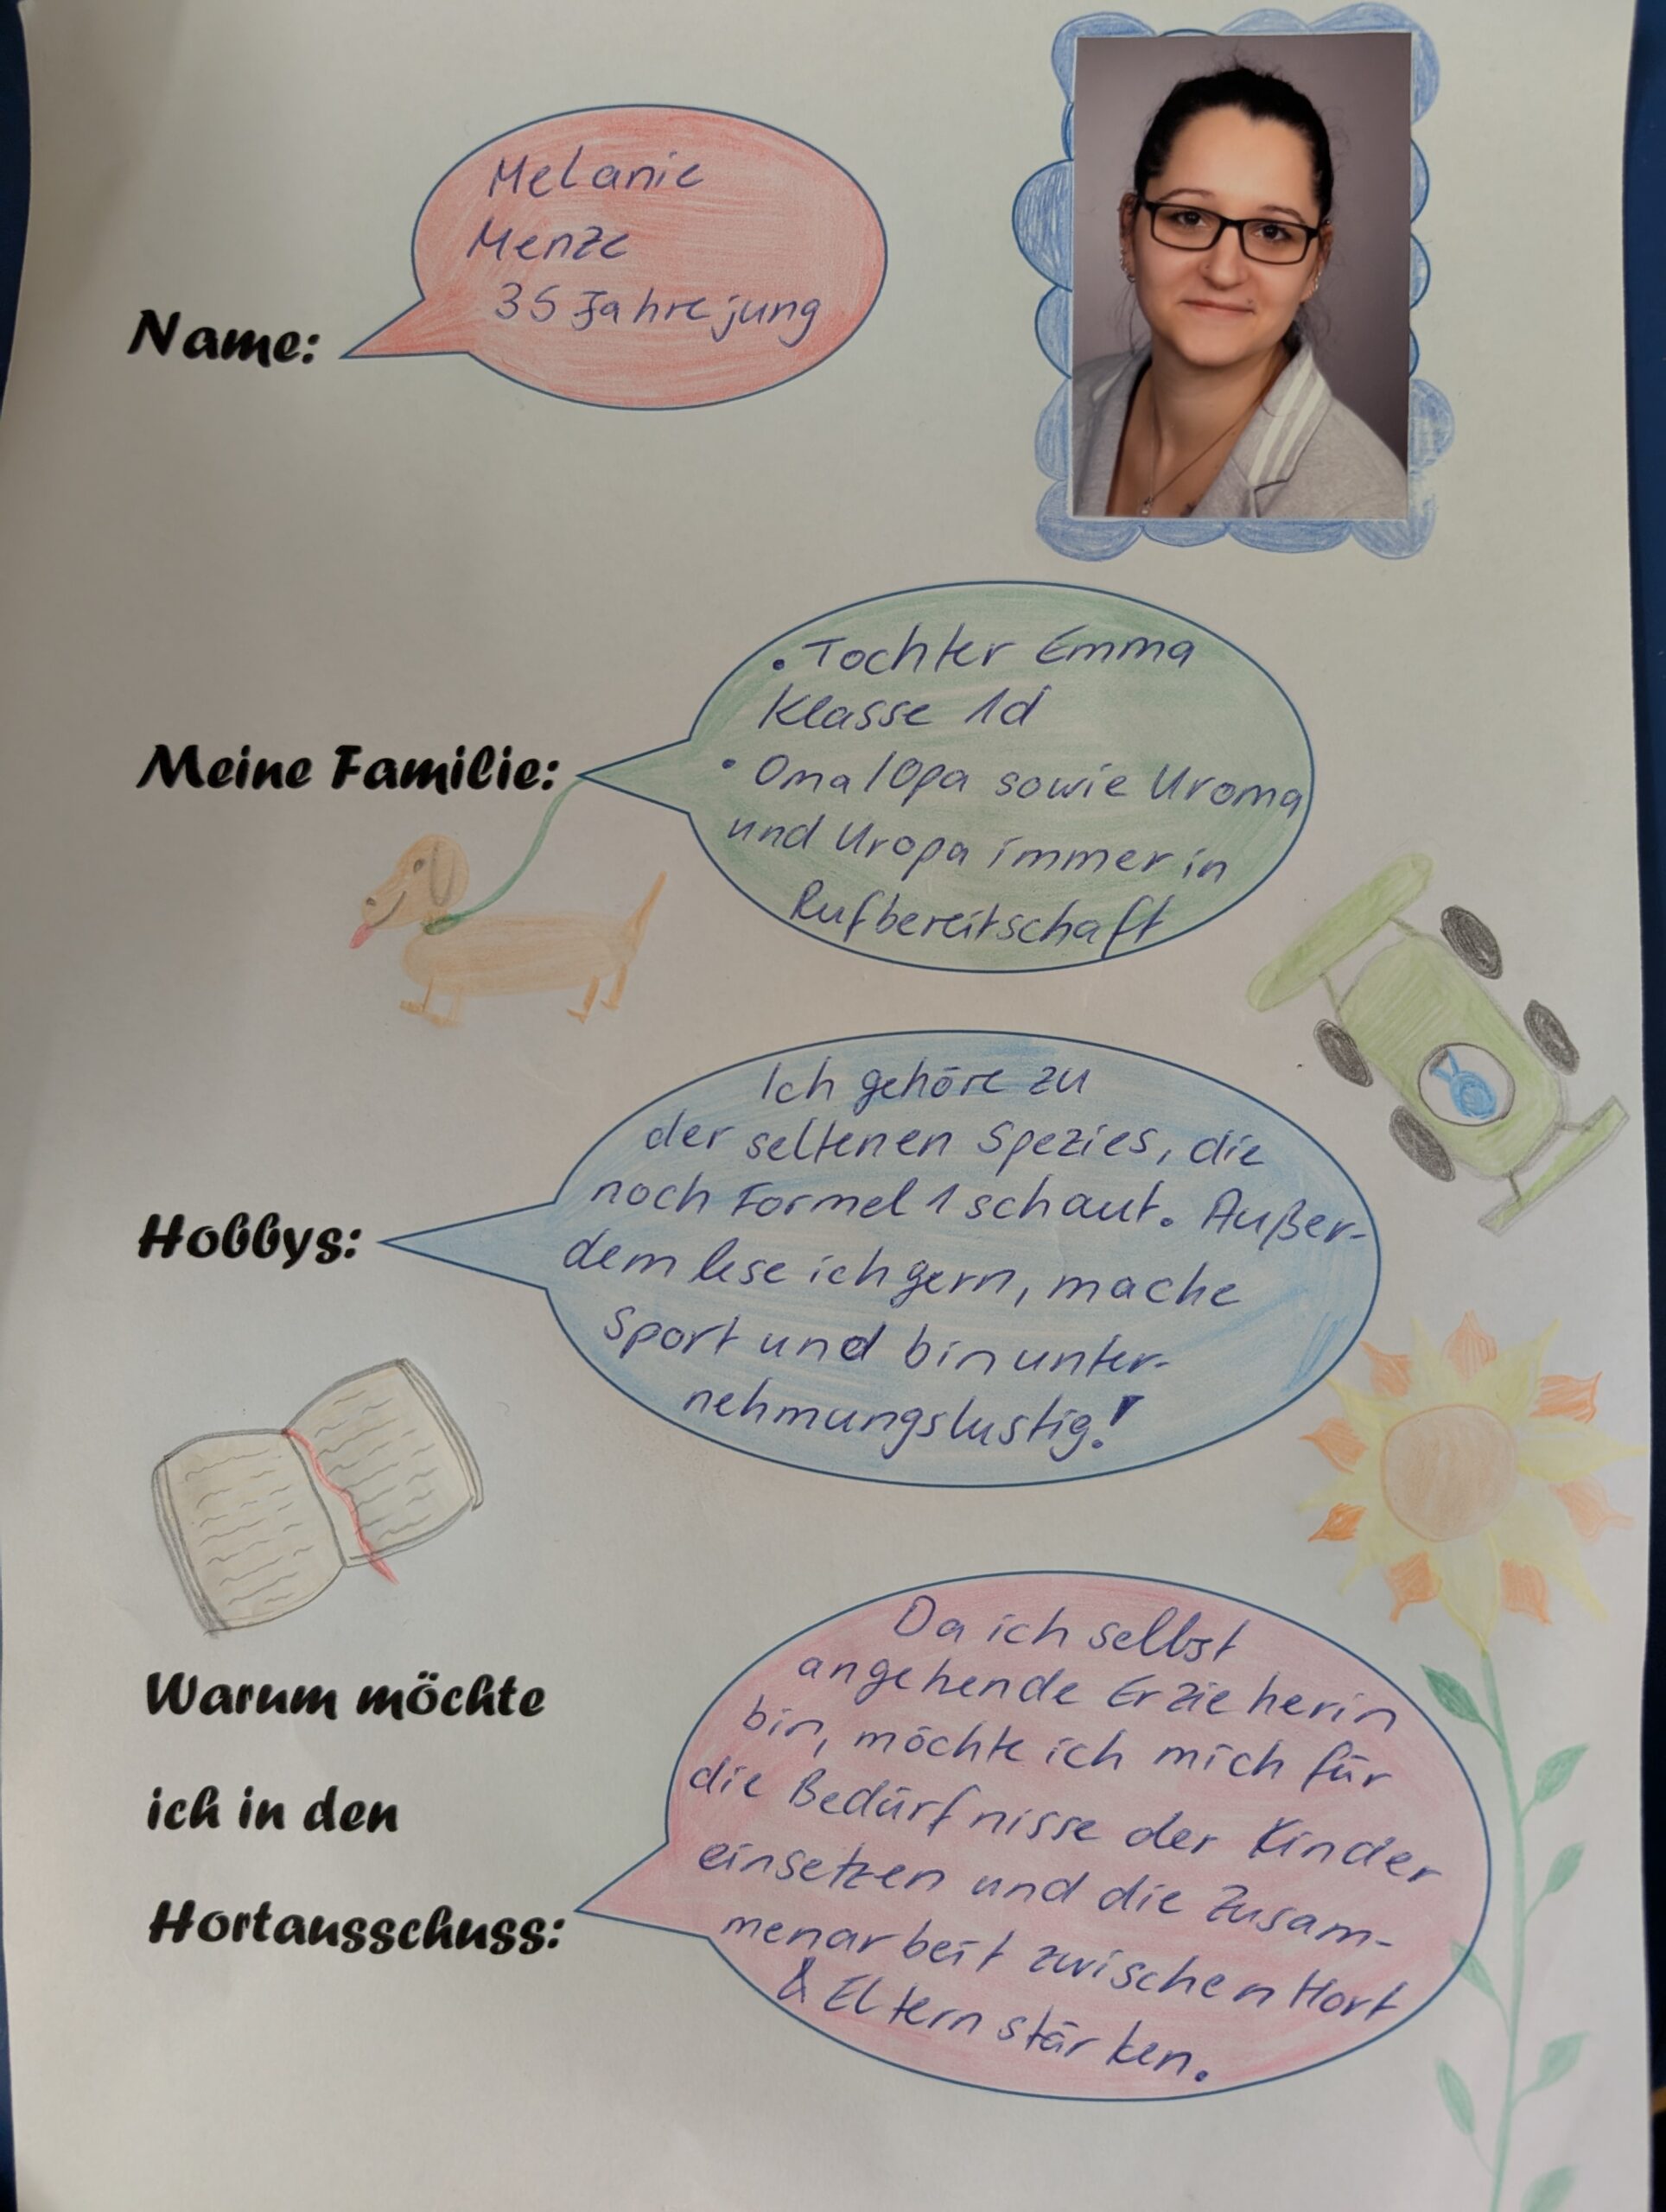 Name:
Melanie
Menze
35 Jahre jung
Meine Familie:
• Tochter Emma
Klasse 1d
• Oma/Opa sowie Uroma
und Uropa immer in
Rufbereitschaft
Hobbys:
Ich gehöre zu
der seltenen Spezies, die
noch Formel 1 schaut. Außer-
dem lese ich gern, mache
Sport und bin unter-
nehmungslustig!
Warum möchte
ich in den
Hortausschuss:
Da ich selbst
angehende Erzieherin
bin, möchte ich mich für
die Bedürfnisse der Kinder
einsetzen und die Zusam-
menarbeit zwischen Hort
& Eltern stärken.